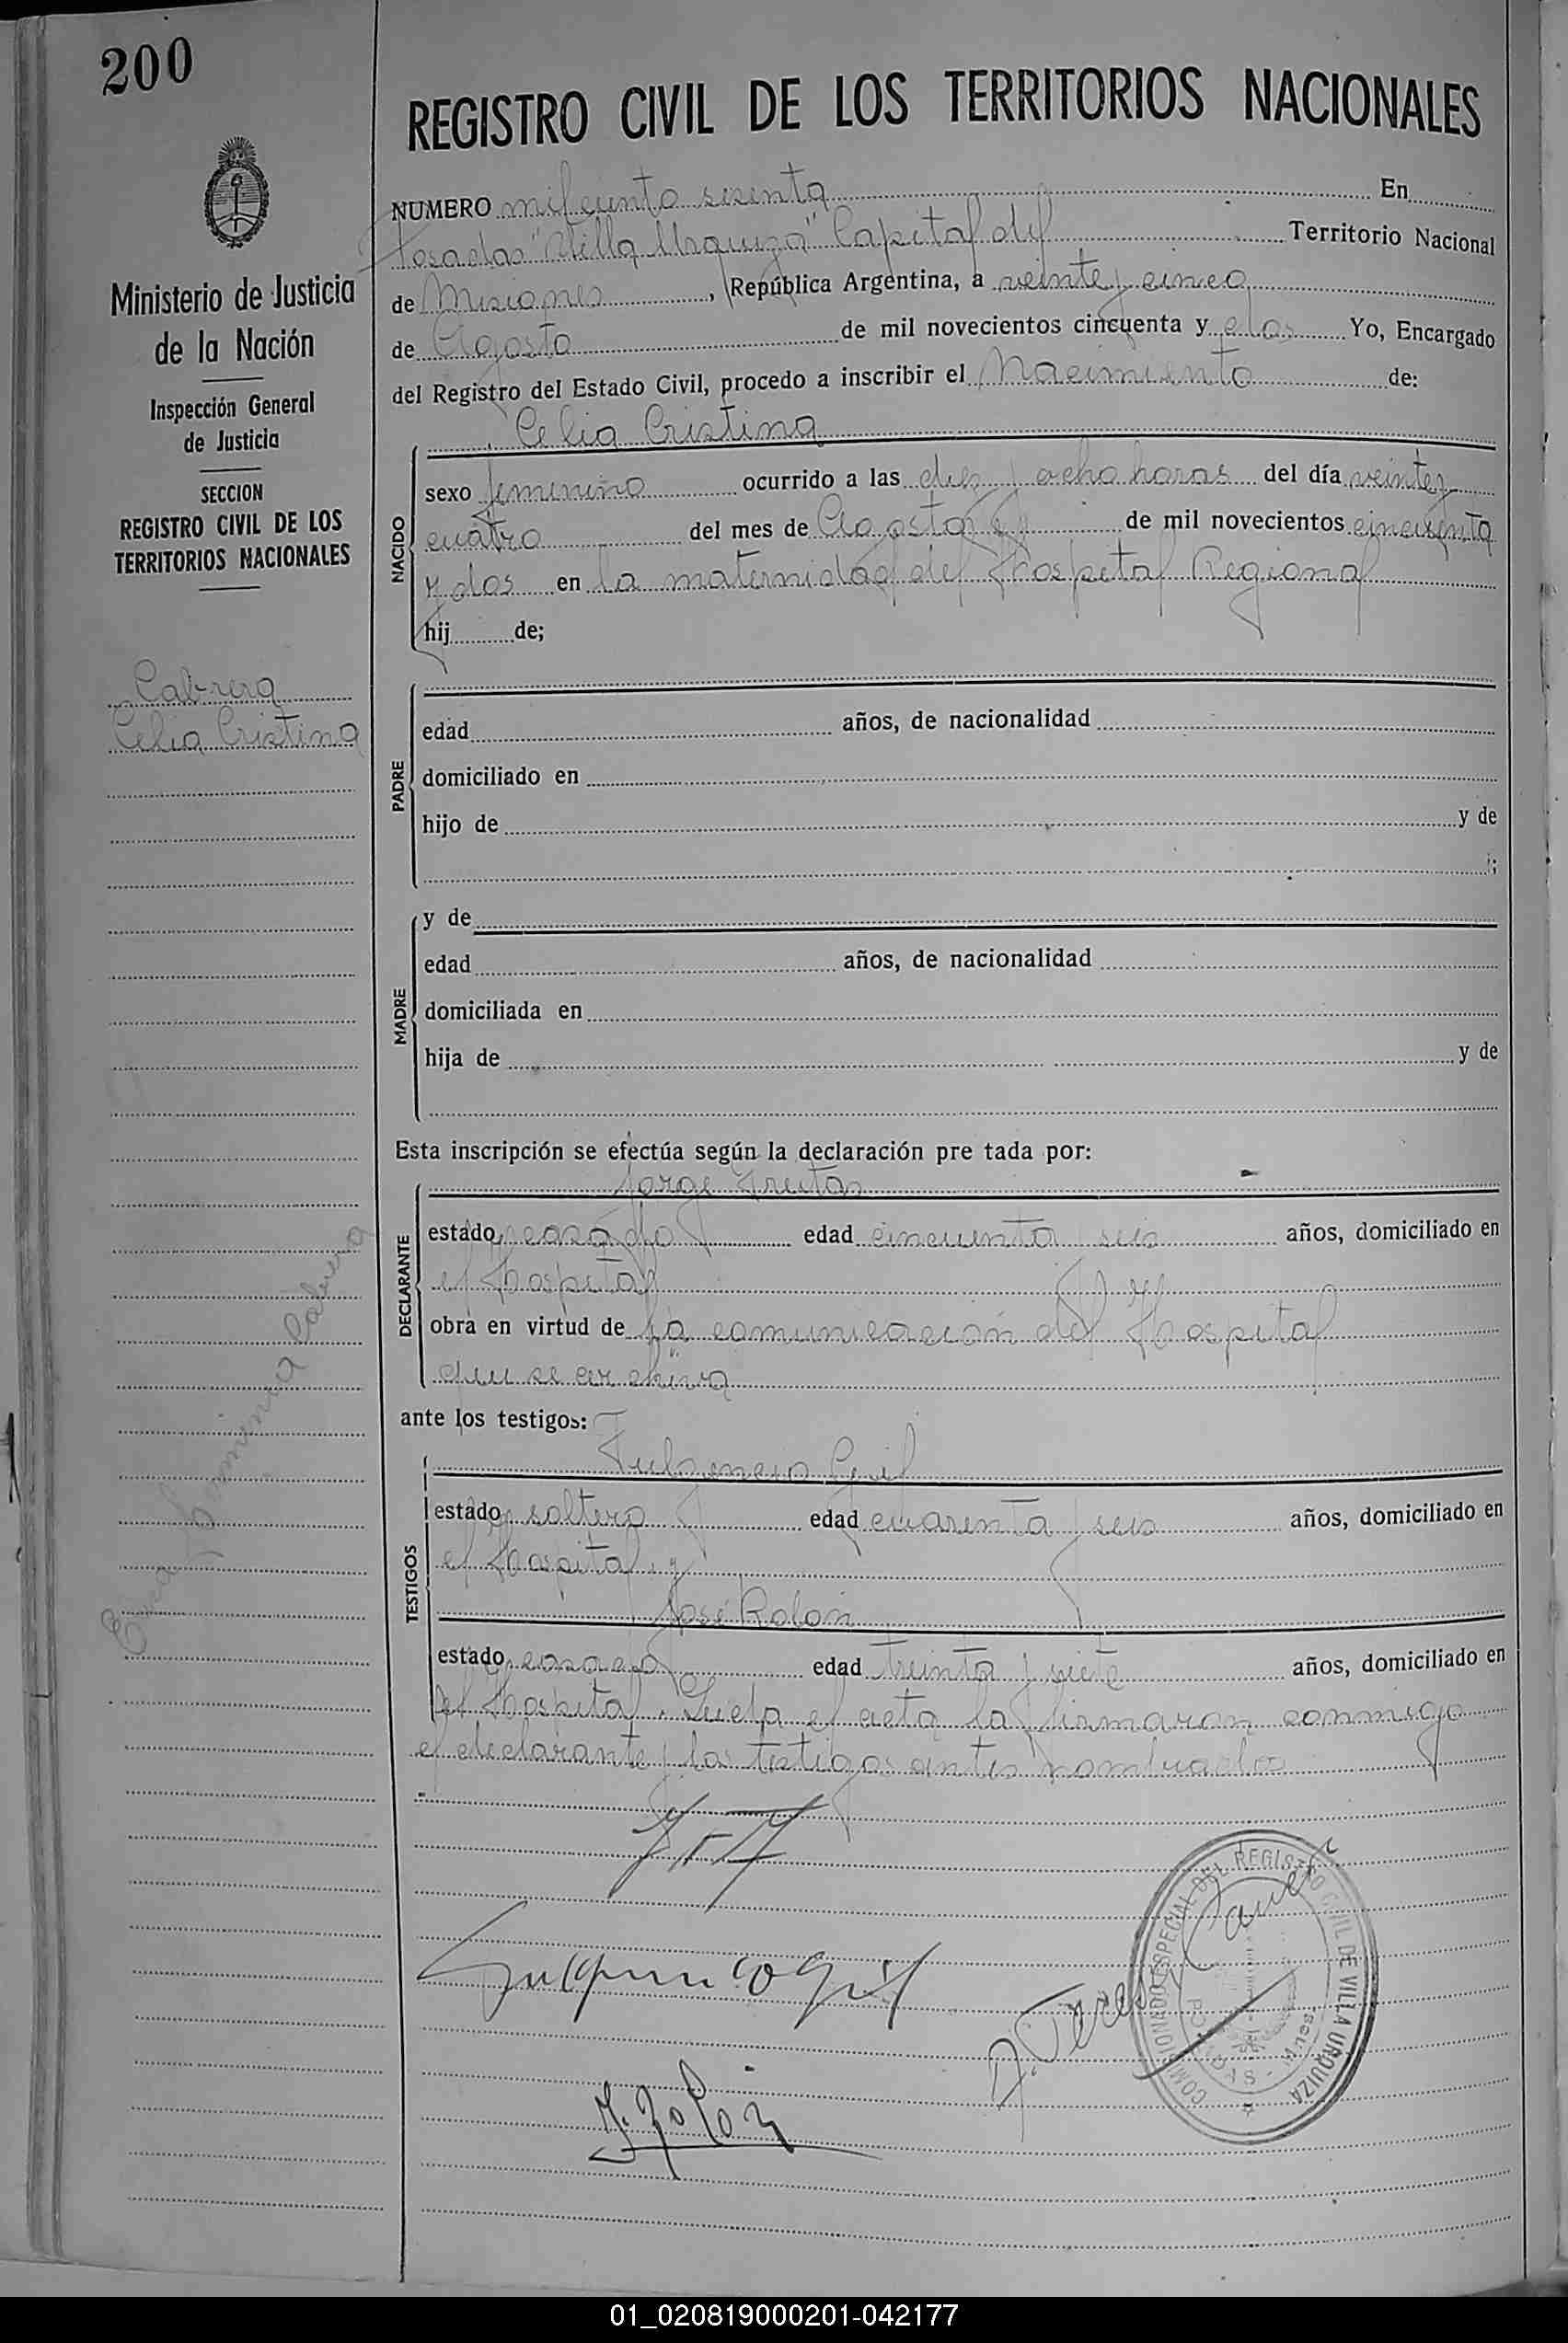 200
REGISTRO CIVIL DE LOS TERRITORIOS NACIONALES
Ministerio de Justicia
de la Nación
Inspección General
de Justicia
SECCION
REGISTRO CIVIL DE LOS
TERRITORIOS NACIONALES
Cabrera
Celia Cristina
Cabrera
NUMERO mil ciento sesenta En
Posadas "Villa Urquiza" Capital del Territorio Nacional
de Misiones, República Argentina, a veinte y cinco
de Agosto de mil novecientos cincuenta y dos Yo, Encargado
del Registro del Estado Civil, procedo a inscribir el Nacimiento de:
Celia Cristina
NACIDO
sexo femenino ocurrido a las diez y ocho horas del día veinte y
cuatro del mes de Agosto de mil novecientos cincuenta
y dos en la maternidad del Hospital Regional
hij de;
PADRE
edad años, de nacionalidad
domiciliado en
hijo de y de
;
MADRE
y de
edad años, de nacionalidad
domiciliada en
hija de y de
Esta inscripción se efectúa según la declaración pre tada por:
DECLARANTE
Jorge Freitas
estado casado edad cincuenta y seis años, domiciliado en
el Hospital
obra en virtud de la comunicación del Hospital
que se archiva
ante los testigos:
TESTIGOS
Fulgencio Gil
estado soltero edad cuarenta y seis años, domiciliado en
el Hospital y
José Rolón
estado casado edad treinta y siete años, domiciliado en
el Hospital. Leída el acta la firmaron conmigo
el declarante y los testigos antes nombrados
Fulgencio Gil
J. Rolón
COMISIONADO ESPECIAL DEL REGISTRO CIVIL DE VILLA URQUIZA
01_020819000201-042177